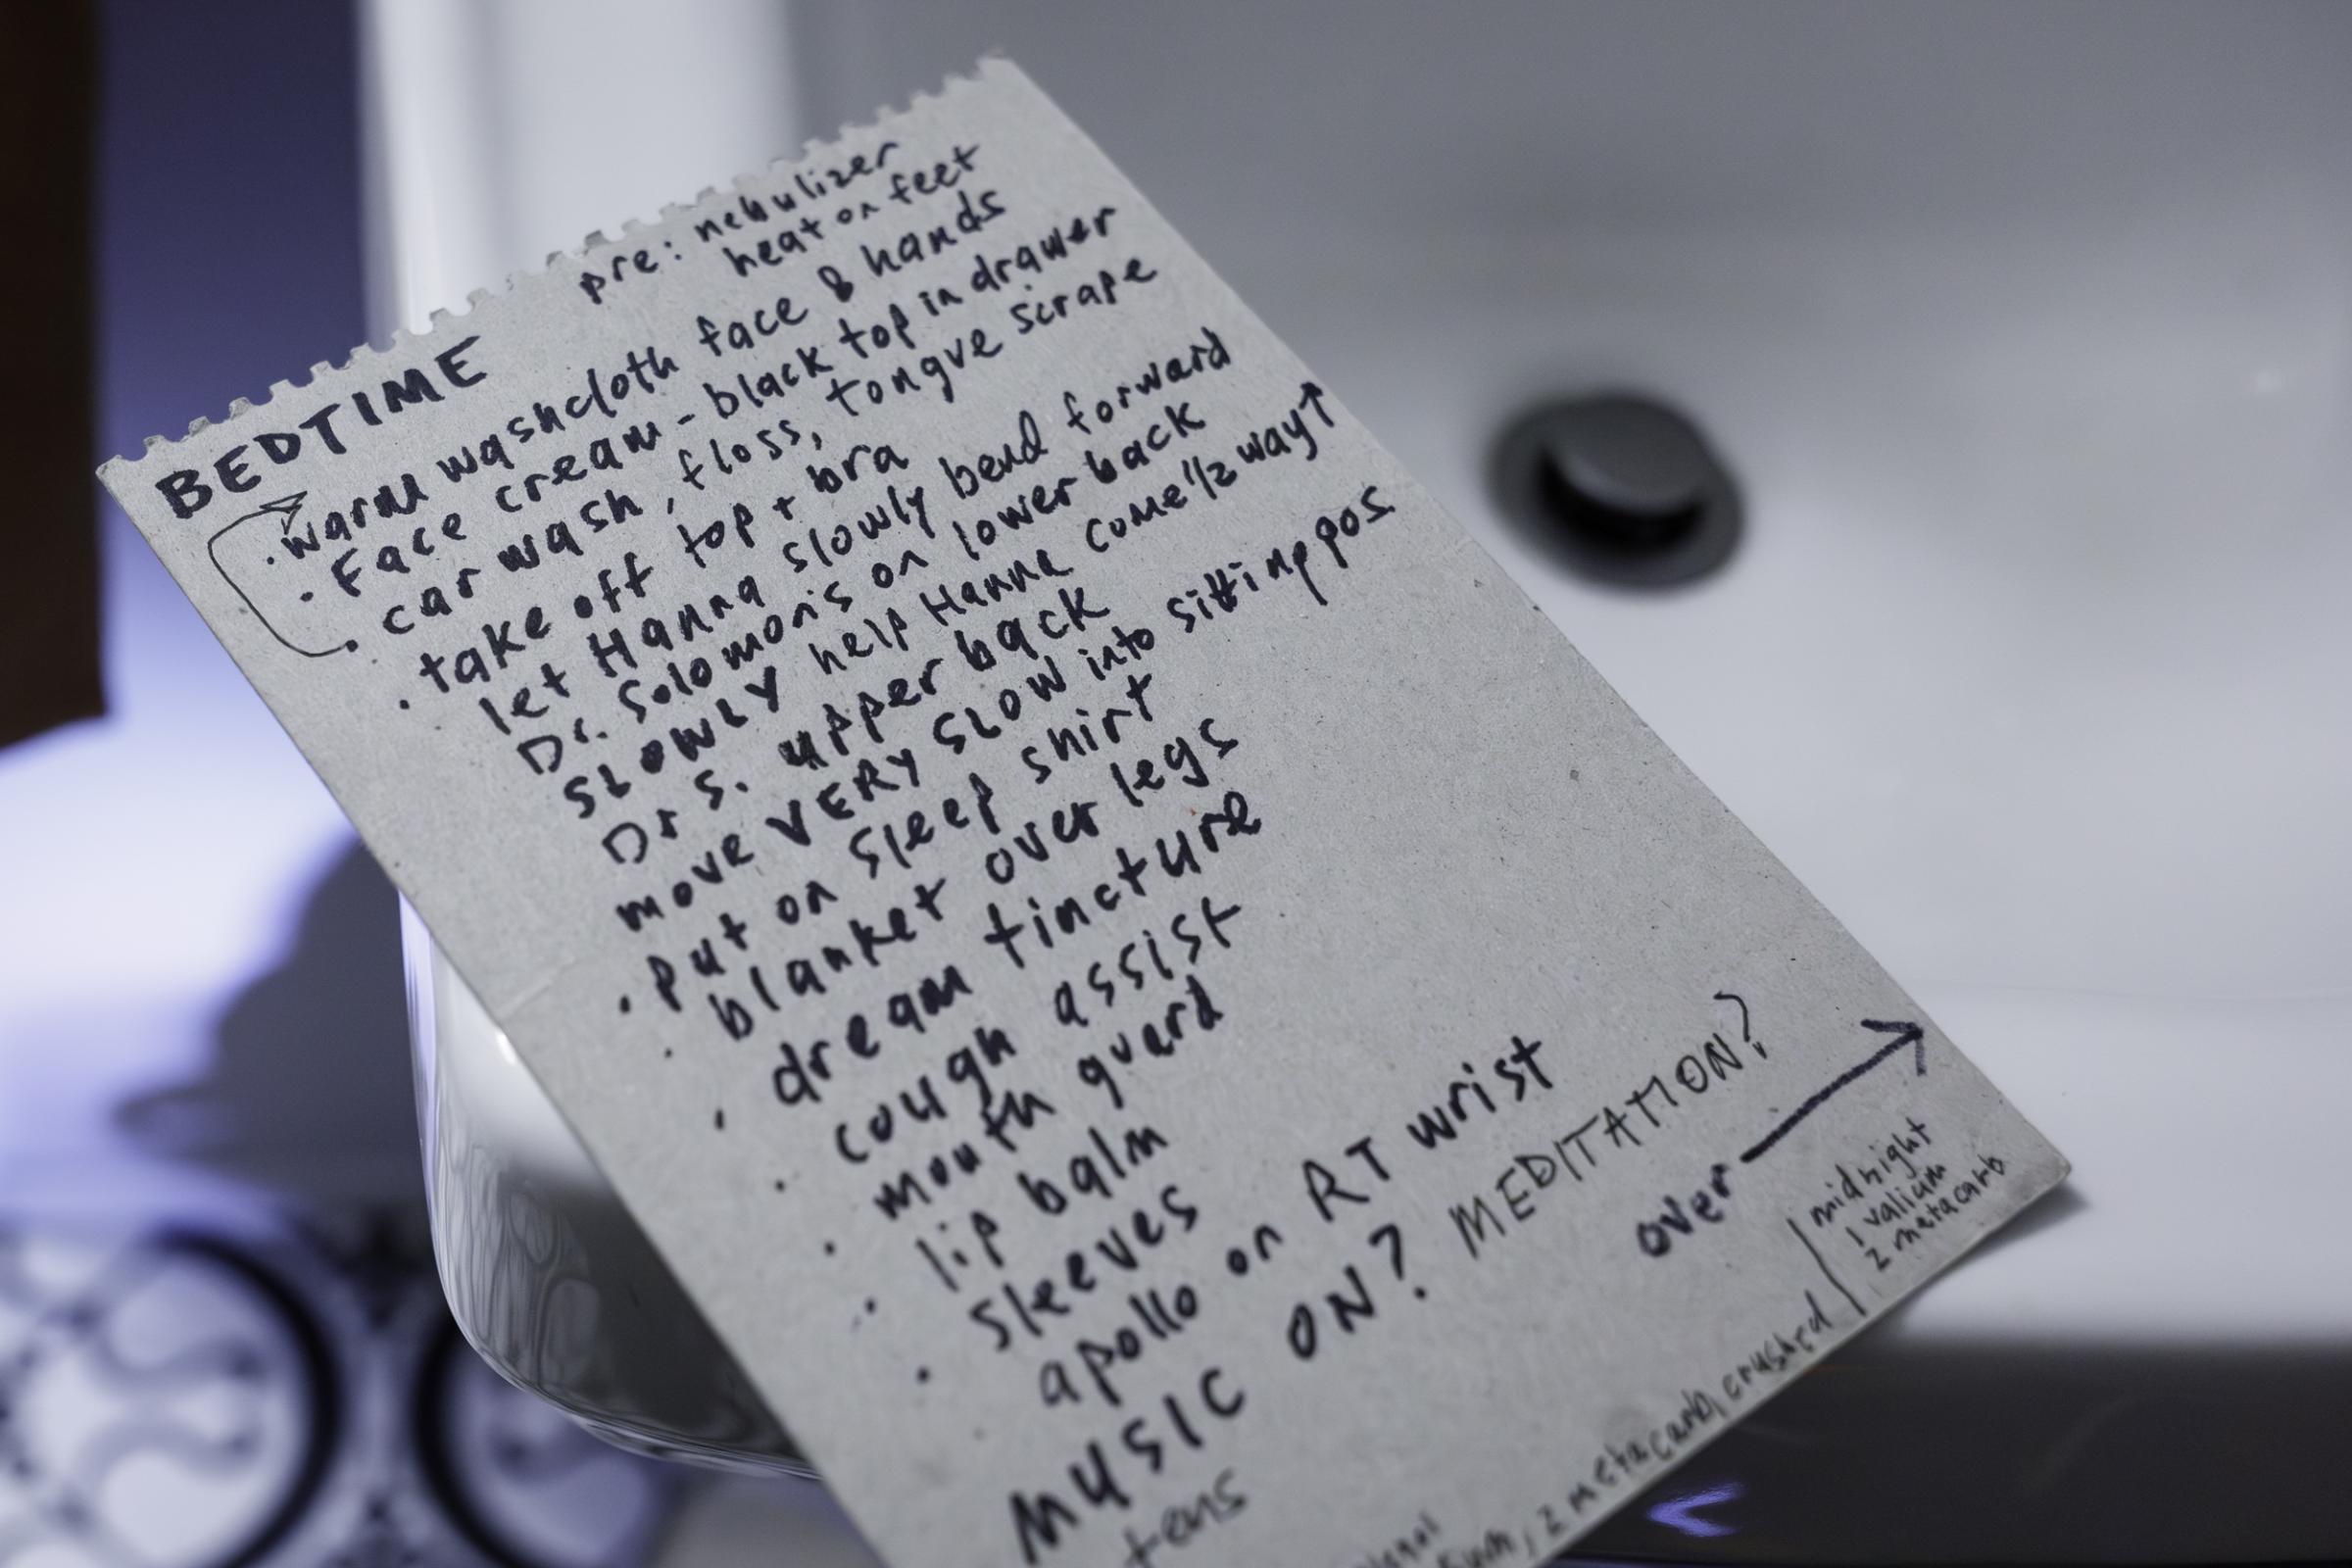 pre: nebulizer
heat on feet
BEDTIME
· warm washcloth face & hands
· Face cream - black top in drawer
· car wash, floss, tongue scrape
· take off top + bra
let Hanna slowly bend forward
Dr. Solomon's on lower back
SLOWLY help Hanna come 1/2 way ↑
Dr S. upper back
move VERY SLOW into sitting pos.
· put on sleep shirt
· blanket over legs
· dream tincture
· cough assist
· mouth guard
· lip balm
· sleeves
apollo on RT wrist
MUSIC ON? MEDITATION?
over →
midnight
1 valium
2 metacarb
tens
2 metacarb, crushed